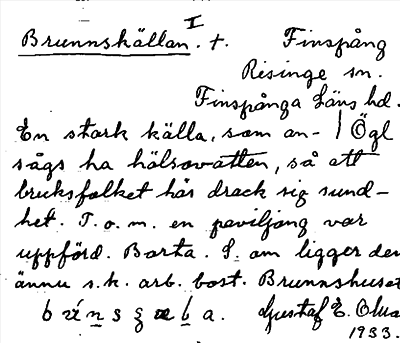 I
Brunnskällan. t. Finspång
Risinge sn.
Finspånga Läns hd.
En stark källa, som an- | Ögl
sågs ha hälsovatten, så att
bruksfolket här drack sig sund-
het. T. o. m. en paviljong var
uppförd. Borta. S. om ligger den
ännu s. k. arb. bost. Brunnshuset
Gustaf E. Olss
1933.